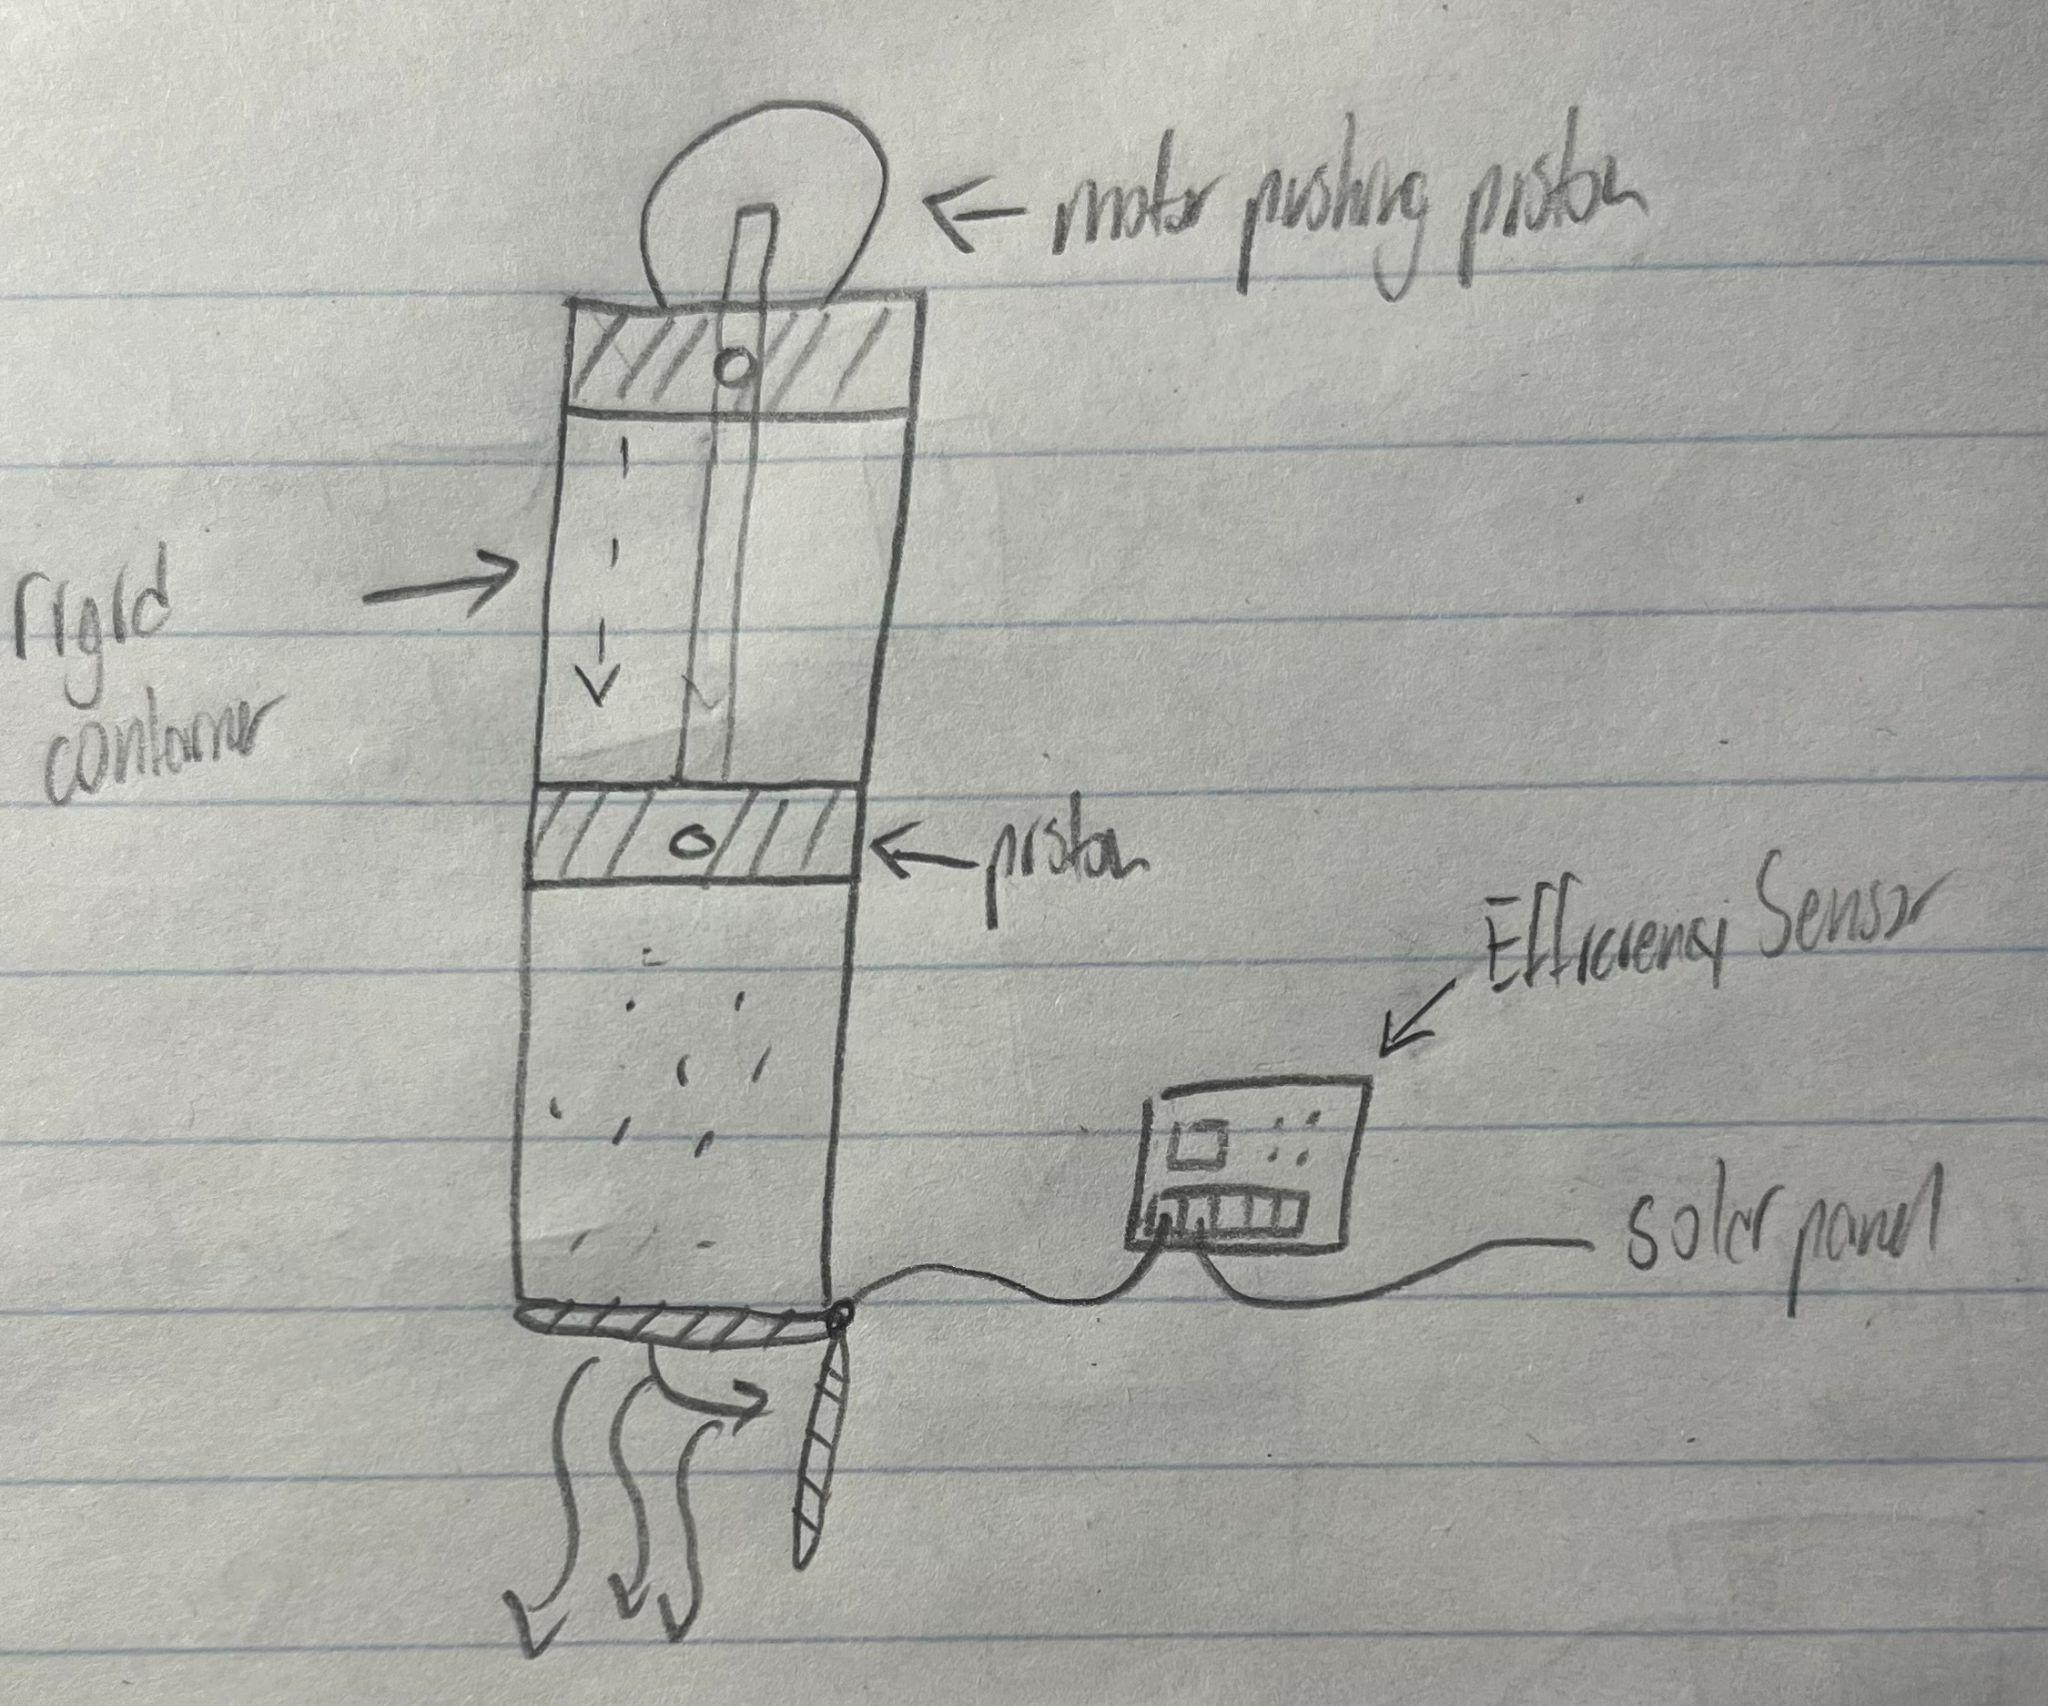 motor pushing piston
rigid
container
piston
Efficiency Sensor
solar panel